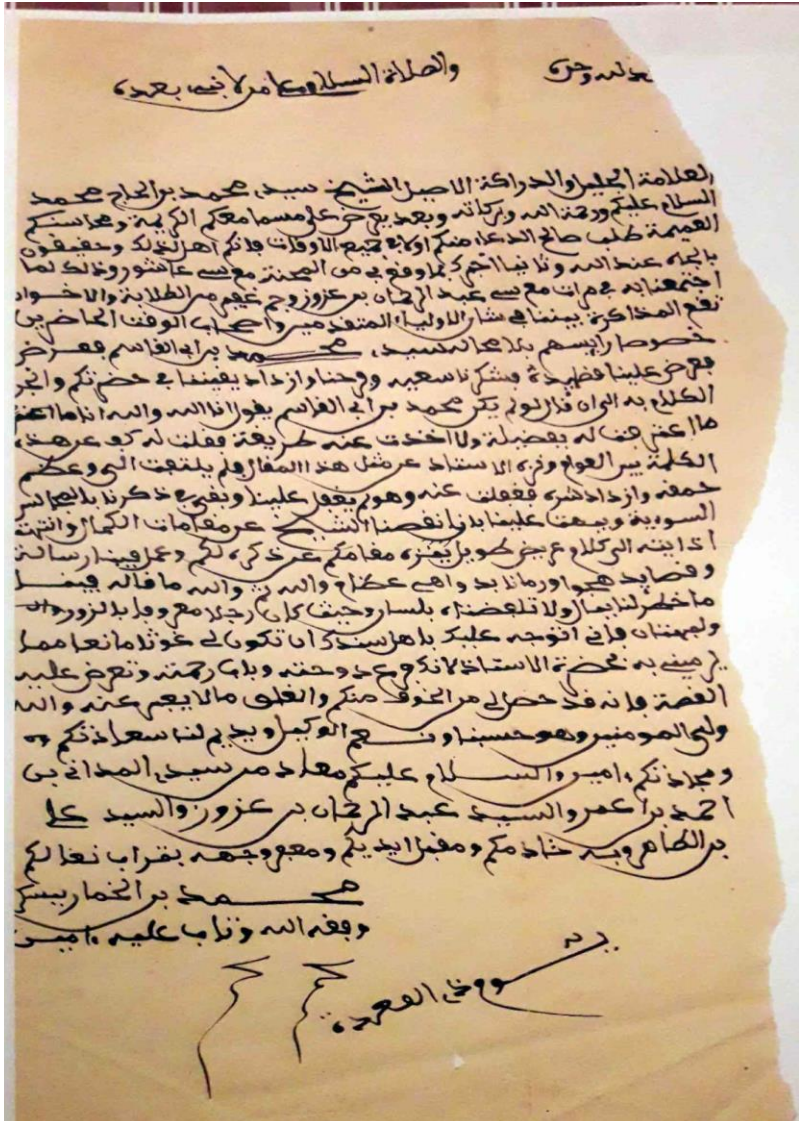 الحمد لله وحده والصلاة والسلام على من لا نبي بعده
العلامة الجليل والدراكة الاصيل الشيخ سيدي محمد بن الحاج محمد
السلام عليكم ورحمة الله وبركاته وبعد يعرض على مسامعكم الكريمة ومحاسنكم
العميمة طلب صالح الدعاء منكم اولا في جميع الاوقات فانكم اهل لذلك وحقيقون
بالجاه عند الله وثانيا وقوعي من المحنة مع سي عاشور وذلك لما
اجتمعنا به في مرات مع سي عبد الرحمان بن عزوز وجم غفير من الطلابة والاخوان
تقع المذاكرة بيننا في شان الاولياء المتقدمين واصحاب الوقت الحاضرين
خصوصا رايسهم بلا محالة سيدي محمد بن ابي القاسم
فعرض علينا قصيدة فشكرنا سعيه وفرحنا وازداد يقيننا في حضرتكم وانجر
الكلام به الى ان قال لو لم يكن محمد بن ابي القاسم يقول انا الله والله انا ما
ما اعترفت له بفضيلة ولا اخذت عنه طريقة فقلت له كف عن هذه
الكلمة بين العوام ونزه الاستاذ عن مثل هذا المقال فلم يلتفت الي وعظم
حمقه وازداد فغفلت عنه وهو لم يغفل علينا وبقي في ذكرنا بالمجالس
السوية وبهت علينا باننا نقصنا الشيخ عن مقامات الكمال وانتهت
اذايته الى كلام عريض طويل ينزه مقامكم عن ذكره لكم وعمل فينا رسالة
وقصايد هجو ورمانا بدواهي عظام والله ثم والله ما قاله فينا
ما خطر لنا ببال ولا تلفظناه بلسان وحيث كان رجلا معروفا بالزور
والبهتان فاني اتوجه عليك باهل سندك ان تكون لي غوثا مانعا مما
يرميني به لحضرة الاستاذ لانك دوحته وباب رحمته وتعرض عليه
القصة فانه قد حصل لي من الخوف منكم والقلق ما لا يعبر عنه والله
ولي المومنين وهو حسبنا ونعم الوكيل ويديم لنا سعادتكم
ومجادتكم امين والسلام عليكم معاد من سيدي المداني بن
احمد بن اعمر والسيد عبد الرحمان بن عزوز والسيد علي
بن الطاهر وبه خادمكم ومقبل ايديكم ومعفر وجهه بتراب نعالكم
محمد بن الخمار ببسكرة
وفقه الله وتاب عليه امين